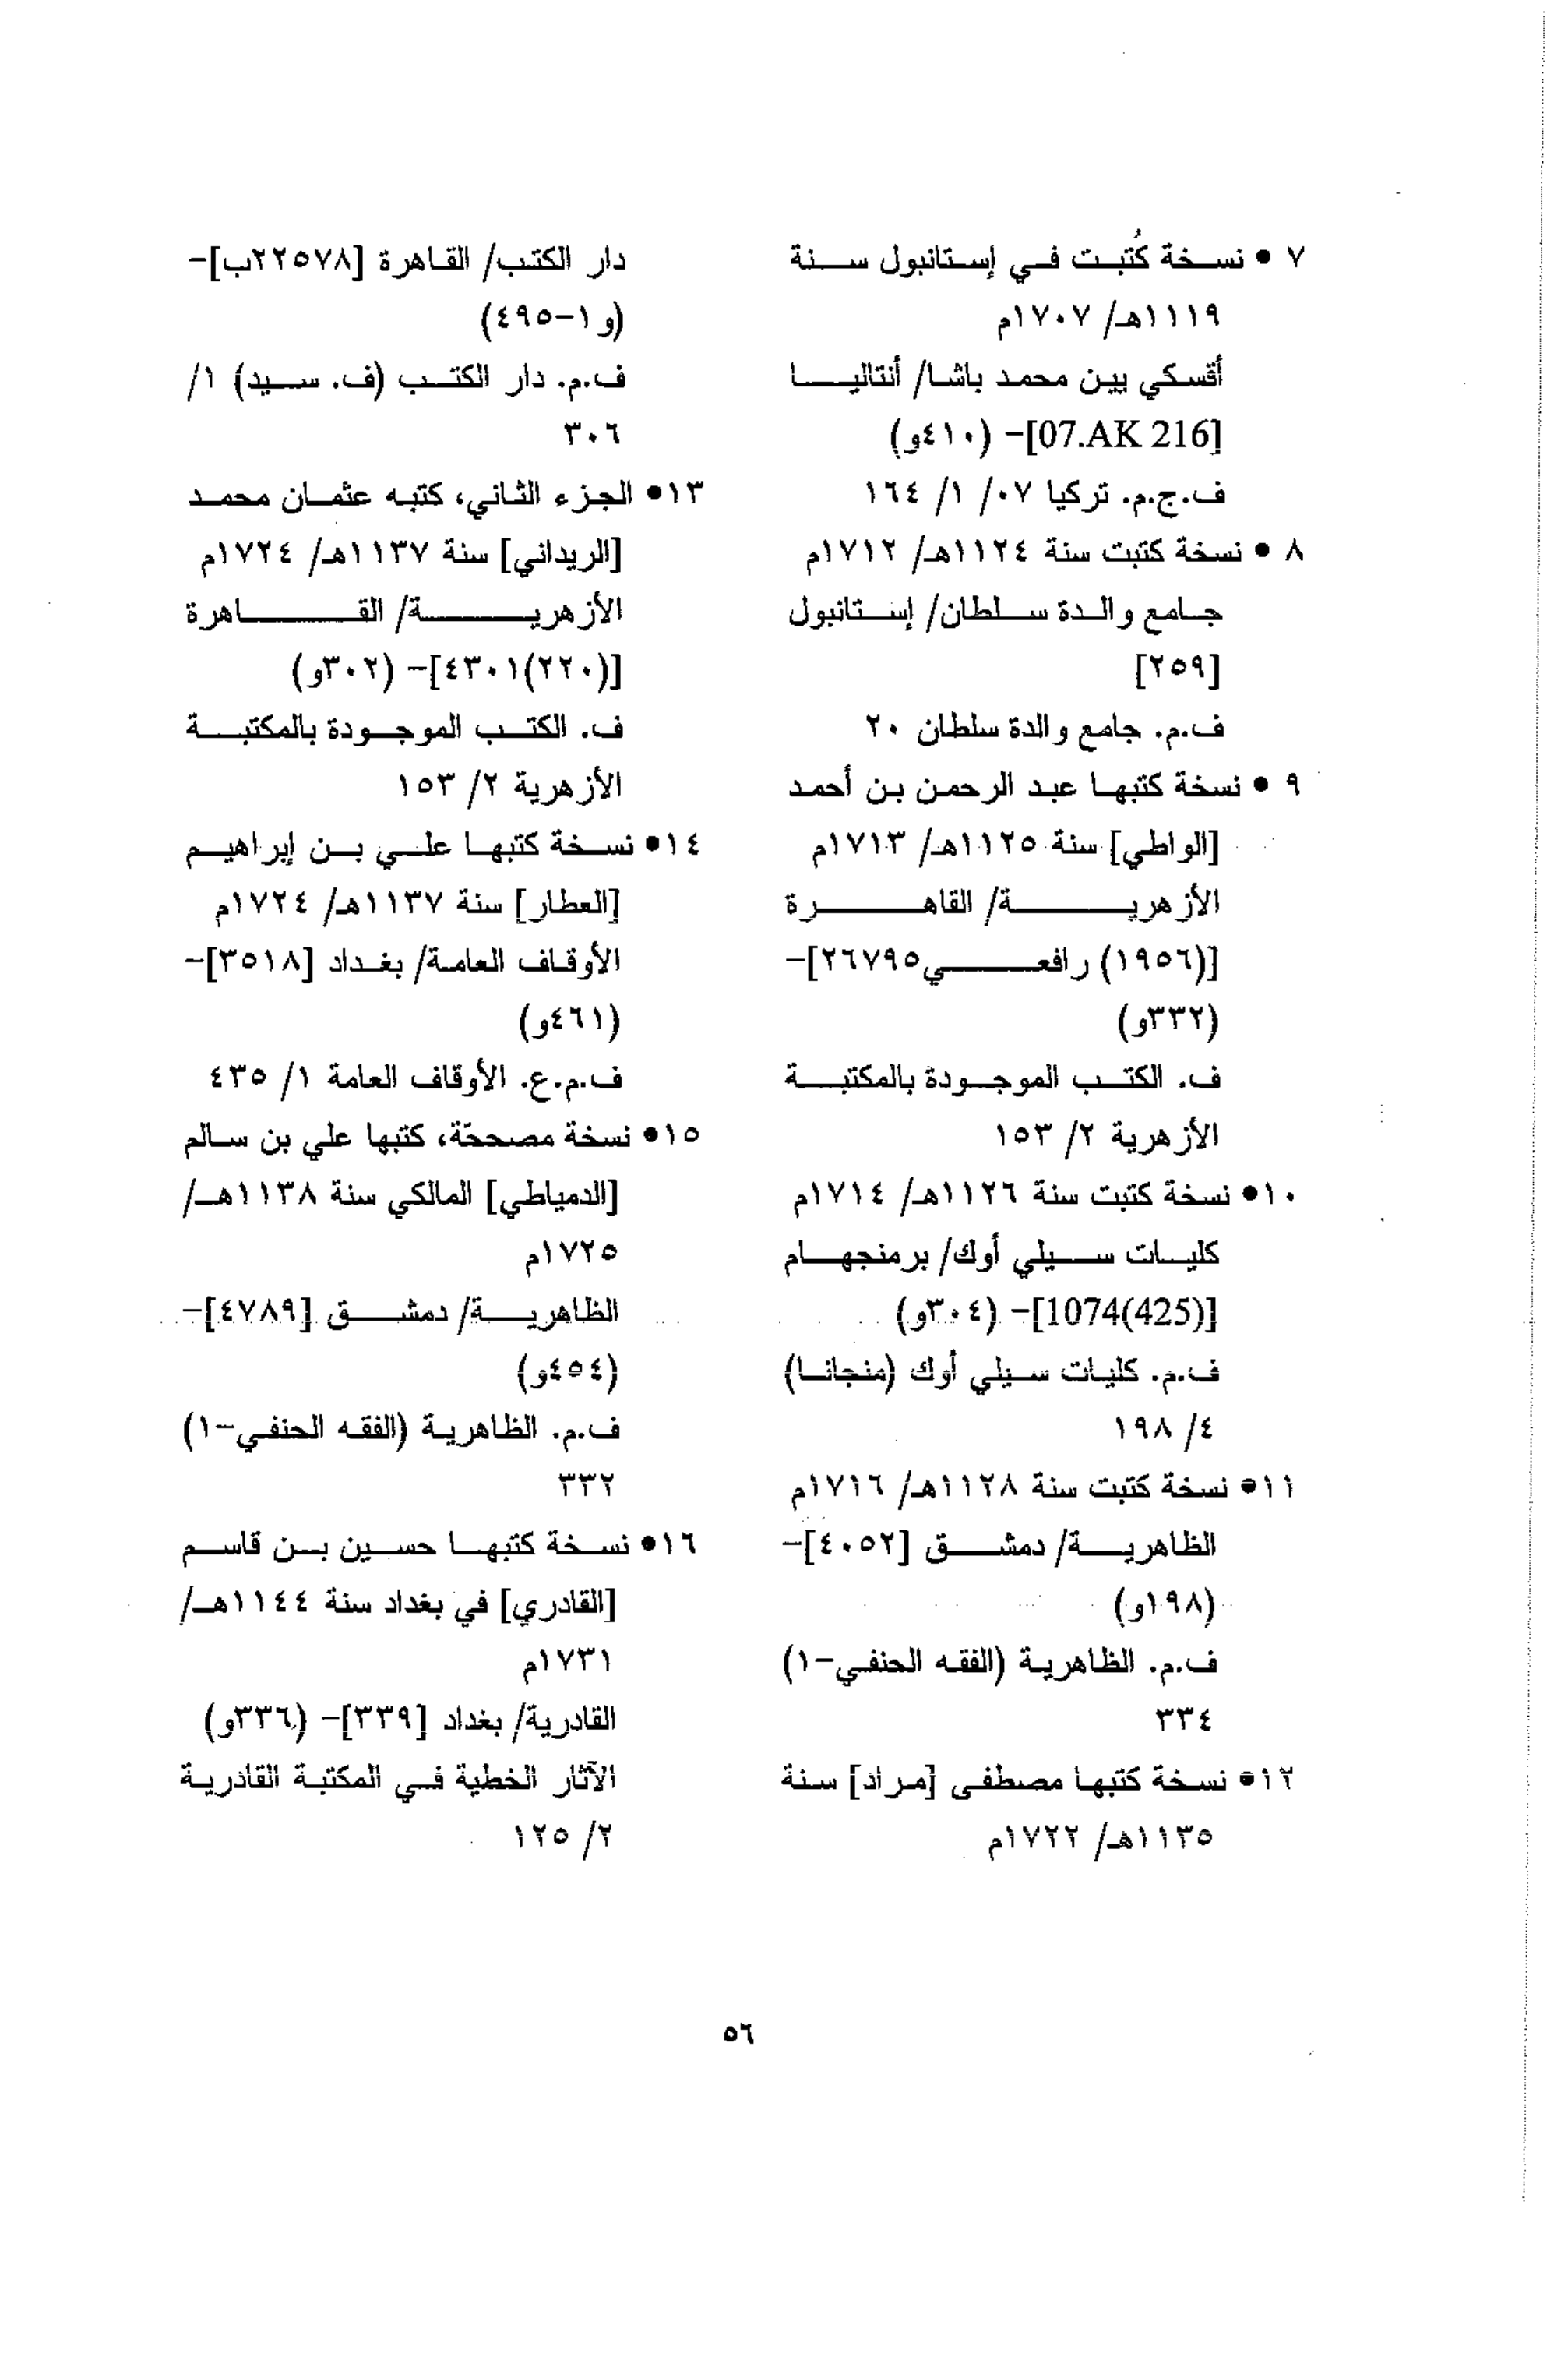 ٧ • نسخة كُتبت في إستانبول سنة
١١١٩هـ/ ١٧٠٧م
أقسكي يين محمد باشا/ أنتاليا
[07.AK 216]- (٤١٠و)
ف.ج.م. تركيا ٠٧/ ١/ ١٦٤
٨ • نسخة كتبت سنة ١١٢٤هـ/ ١٧١٢م
جامع والدة سلطان/ إستانبول
[٢٥٩]
ف.م. جامع والدة سلطان ٢٠
٩ • نسخة كتبها عبد الرحمن بن أحمد
[الواطي] سنة ١١٢٥هـ/ ١٧١٣م
الأزهرية/ القاهرة
[(١٩٥٦) رافعي٢٦٧٩٥]-
(٣٣٢و)
ف. الكتب الموجودة بالمكتبة
الأزهرية ٢/ ١٥٣
١٠• نسخة كتبت سنة ١١٢٦هـ/ ١٧١٤م
كليات سيلي أوك/ برمنجهام
[1074(425)]- (٣٠٤و)
ف.م. كليات سيلي أوك (منجانا)
٤/ ١٩٨
١١• نسخة كتبت سنة ١١٢٨هـ/ ١٧١٦م
الظاهرية/ دمشق [٤٠٥٢]-
(١٩٨و)
ف.م. الظاهرية (الفقه الحنفي-١)
٣٣٤
١٢• نسخة كتبها مصطفى [مراد] سنة
١١٣٥هـ/ ١٧٢٢م
دار الكتب/ القاهرة [٢٢٥٧٨ب]-
(و ١-٤٩٥)
ف.م. دار الكتب (ف. سيد) ١/
٣٠٦
١٣• الجزء الثاني، كتبه عثمان محمد
[الريداني] سنة ١١٣٧هـ/ ١٧٢٤م
الأزهرية/ القاهرة
[(٢٢٠)٤٣٠١]- (٣٠٢و)
ف. الكتب الموجودة بالمكتبة
الأزهرية ٢/ ١٥٣
١٤• نسخة كتبها علي بن إبراهيم
[العطار] سنة ١١٣٧هـ/ ١٧٢٤م
الأوقاف العامة/ بغداد [٣٥١٨]-
(٤٦١و)
ف.م.ع. الأوقاف العامة ١/ ٤٣٥
١٥• نسخة مصححّة، كتبها علي بن سالم
[الدمياطي] المالكي سنة ١١٣٨هـ/
١٧٢٥م
الظاهرية/ دمشق [٤٧٨٩]-
(٤٥٤و)
ف.م. الظاهرية (الفقه الحنفي-١)
٣٣٢
١٦• نسخة كتبها حسين بن قاسم
[القادري] في بغداد سنة ١١٤٤هـ/
١٧٣١م
القادرية/ بغداد [٣٣٩]- (٣٣٦و)
الآثار الخطية في المكتبة القادرية
٢/ ١٢٥
٥٦